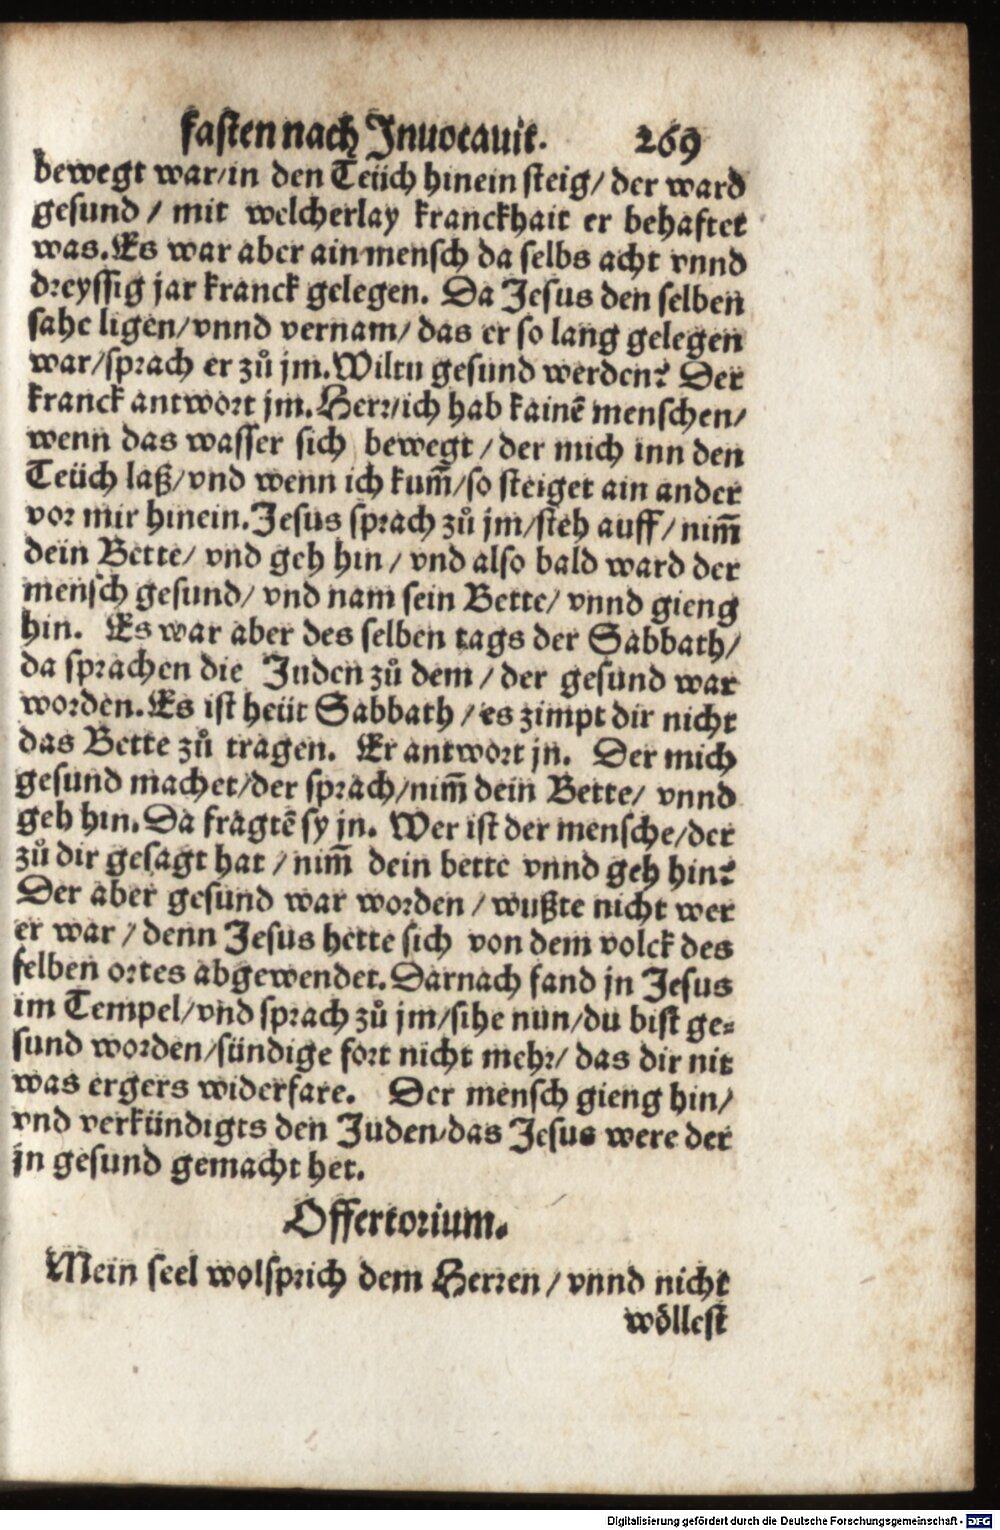 fasten nach Inuocauit. 269
bewegt war/in den Teüch hinein steig/ der ward
gesund / mit welcherlay kranckhait er behafftet
was. Es war aber ain mensch da selbs acht vnnd
dreyssig jar kranck gelegen. Da Jesus den selben
sahe ligen/vnnd vernam/ das er so lang gelegen
war/sprach er zů jm. Wiltu gesund werden? Der
kranck antwort jm. Herr/ich hab kainē menschen/
wenn das wasser sich bewegt / der mich inn den
Teüch laß/vnd wenn ich kum̄/so steiget ain ander
vor mir hinein. Jesus sprach zů jm/steh auff/ nim̄
dein Bette/ vnd geh hin / vnd also bald ward der
mensch gesund/ vnd nam sein Bette/ vnnd gieng
hin. Es war aber des selben tags der Sabbath/
da sprachen die Juden zů dem / der gesund war
worden. Es ist heüt Sabbath / es zimpt dir nicht
das Bette zů tragen. Er antwort jn. Der mich
gesund machet/der sprach/nim̄ dein Bette/ vnnd
geh hin. Da fragtē sy jn. Wer ist der mensche/der
zů dir gesagt hat / nim̄ dein bette vnnd geh hin?
Der aber gesund war worden / wußte nicht wer
er war / denn Jesus hette sich von dem volck des
selben ortes abgewendet. Darnach fand jn Jesus
im Tempel/vnd sprach zů jm/sihe nun/du bist ge=
sund worden/sündige fort nicht mehr/ das dir nit
was ergers widerfare. Der mensch gieng hin/
vnd verkündigts den Juden/das Jesus were der
jn gesund gemacht het.
Offertorium.
Mein seel wolsprich dem Herren / vnnd nicht
wöllest
Digitalisierung gefördert durch die Deutsche Forschungsgemeinschaft - DFG